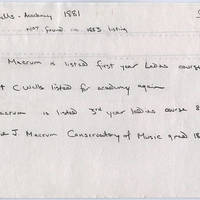 Wells - Academy 1881
not found in 1883 listing
Macrum is listed first year Ladies course
C Wells listed for academy again
Macrum is listed 3rd year ladies course 8
J. Macrum Conservatory of Music grad 18